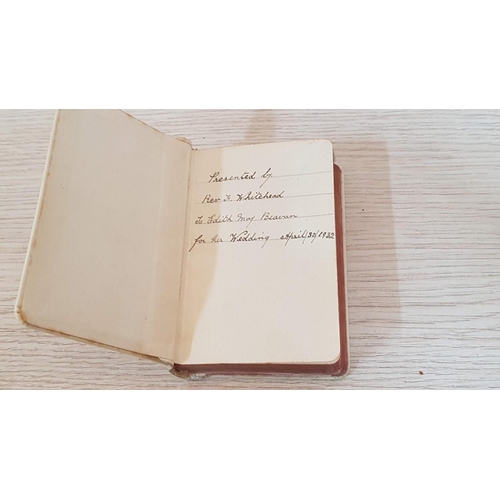 Presented by
Rev. F. Whitehead
To Edith May Beavan
for her Wedding April/30/1932